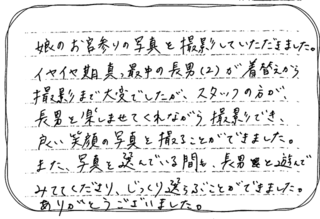 娘のお宮参りの写真を撮影していただきました。
イヤイヤ期真っ最中の長男(2)が着替えから
撮影まで大変でしたが、スタッフの方が、
長男を楽しませてくれながら撮影でき、
良い笑顔の写真を撮ることができました。
また、写真を選んでいる間も、長男と遊んで
みててくださり、じっくり選ぶことができました。
ありがとうございました。